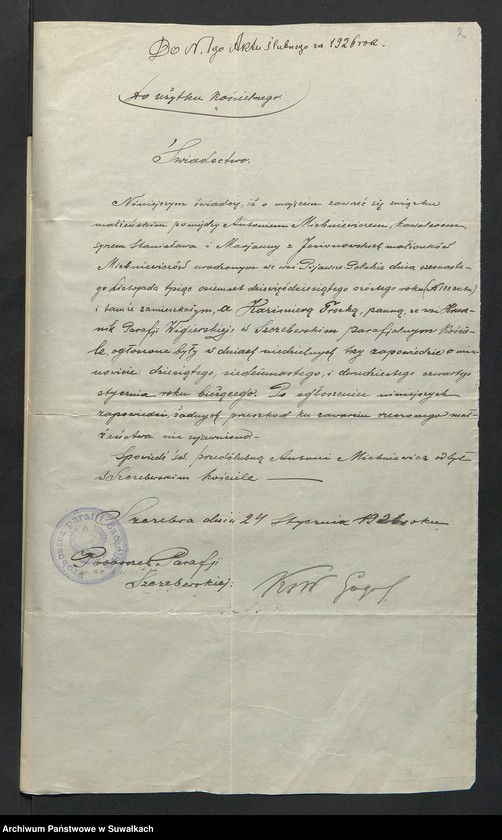 2
Do N. 1go Aktu ślubnego za 1926 rok.
do użytku kościelnego.
Świadectwo.
Niniejszym świadczę, iż o mającem zawrzeć się związku
małżeńskim pomiędzy Antonim Michniewiczem, kawalerem,
synem Stanisława i Marjanny z Jesionowskich małżonków
Michniewiczów urodzonym we wsi Pijawne-Polskie dnia szesnaste-
go listopada tysiąc osiemset dziewięćdziesiątego szóstego roku
i tamże zamieszkałym, a Kazimierą Trocką, panną, ze wsi
Parafji Wigierskiej, w Szczeberskim parafjalnym Koście-
le, ogłoszone były w dniach niedzielnych trzy zapowiedzie a mia-
nowicie: dziesiątego, siedemnastego, i dwudziestego czwartego
stycznia roku bieżącego. Po ogłoszeniu niniejszych
zapowiedzi, żadnych przeszkód ku zawarciu rzeczonego mał-
żeństwa nie ujawniono.
Spowiedź św. przedślubną Antoni Michniewicz odbył
w Szczeberskim kościele
Szczebra dnia 24 stycznia 1926 roku
Proboszcz Parafji
Szczeberskiej:
Archiwum Państwowe w Suwałkach